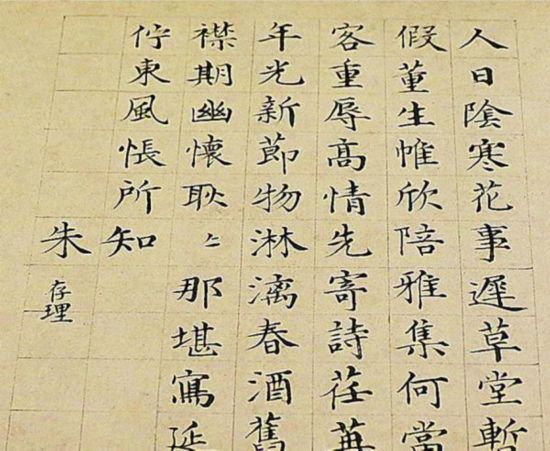 人日陰寒花事遲草堂暫
假董生帷欣陪雅集何當
客重辱高情先寄詩荏苒
年光新節物淋漓春酒舊
襟期幽懷耿〻那堪寫延
佇東風悵所知
朱存理